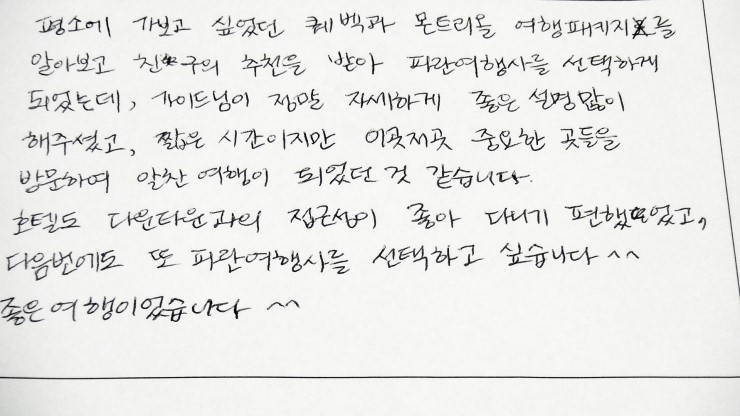 평소에 가보고 싶었던 퀘벡과 몬트리올 여행패키지를
알아보고 친구의 추천을 받아 파란여행사를 선택하게
되었는데, 가이드님이 정말 자세하게 좋은 설명많이
해주셨고, 짧은 시간이지만 이곳저곳 중요한 곳들을
방문하여 알찬 여행이 되었던 것 같습니다.
호텔도 다운타운과의 접근성이 좋아 다니기 편했었고,
다음번에도 또 파란여행사를 선택하고 싶습니다 ^^
좋은여행이었습니다 ^^